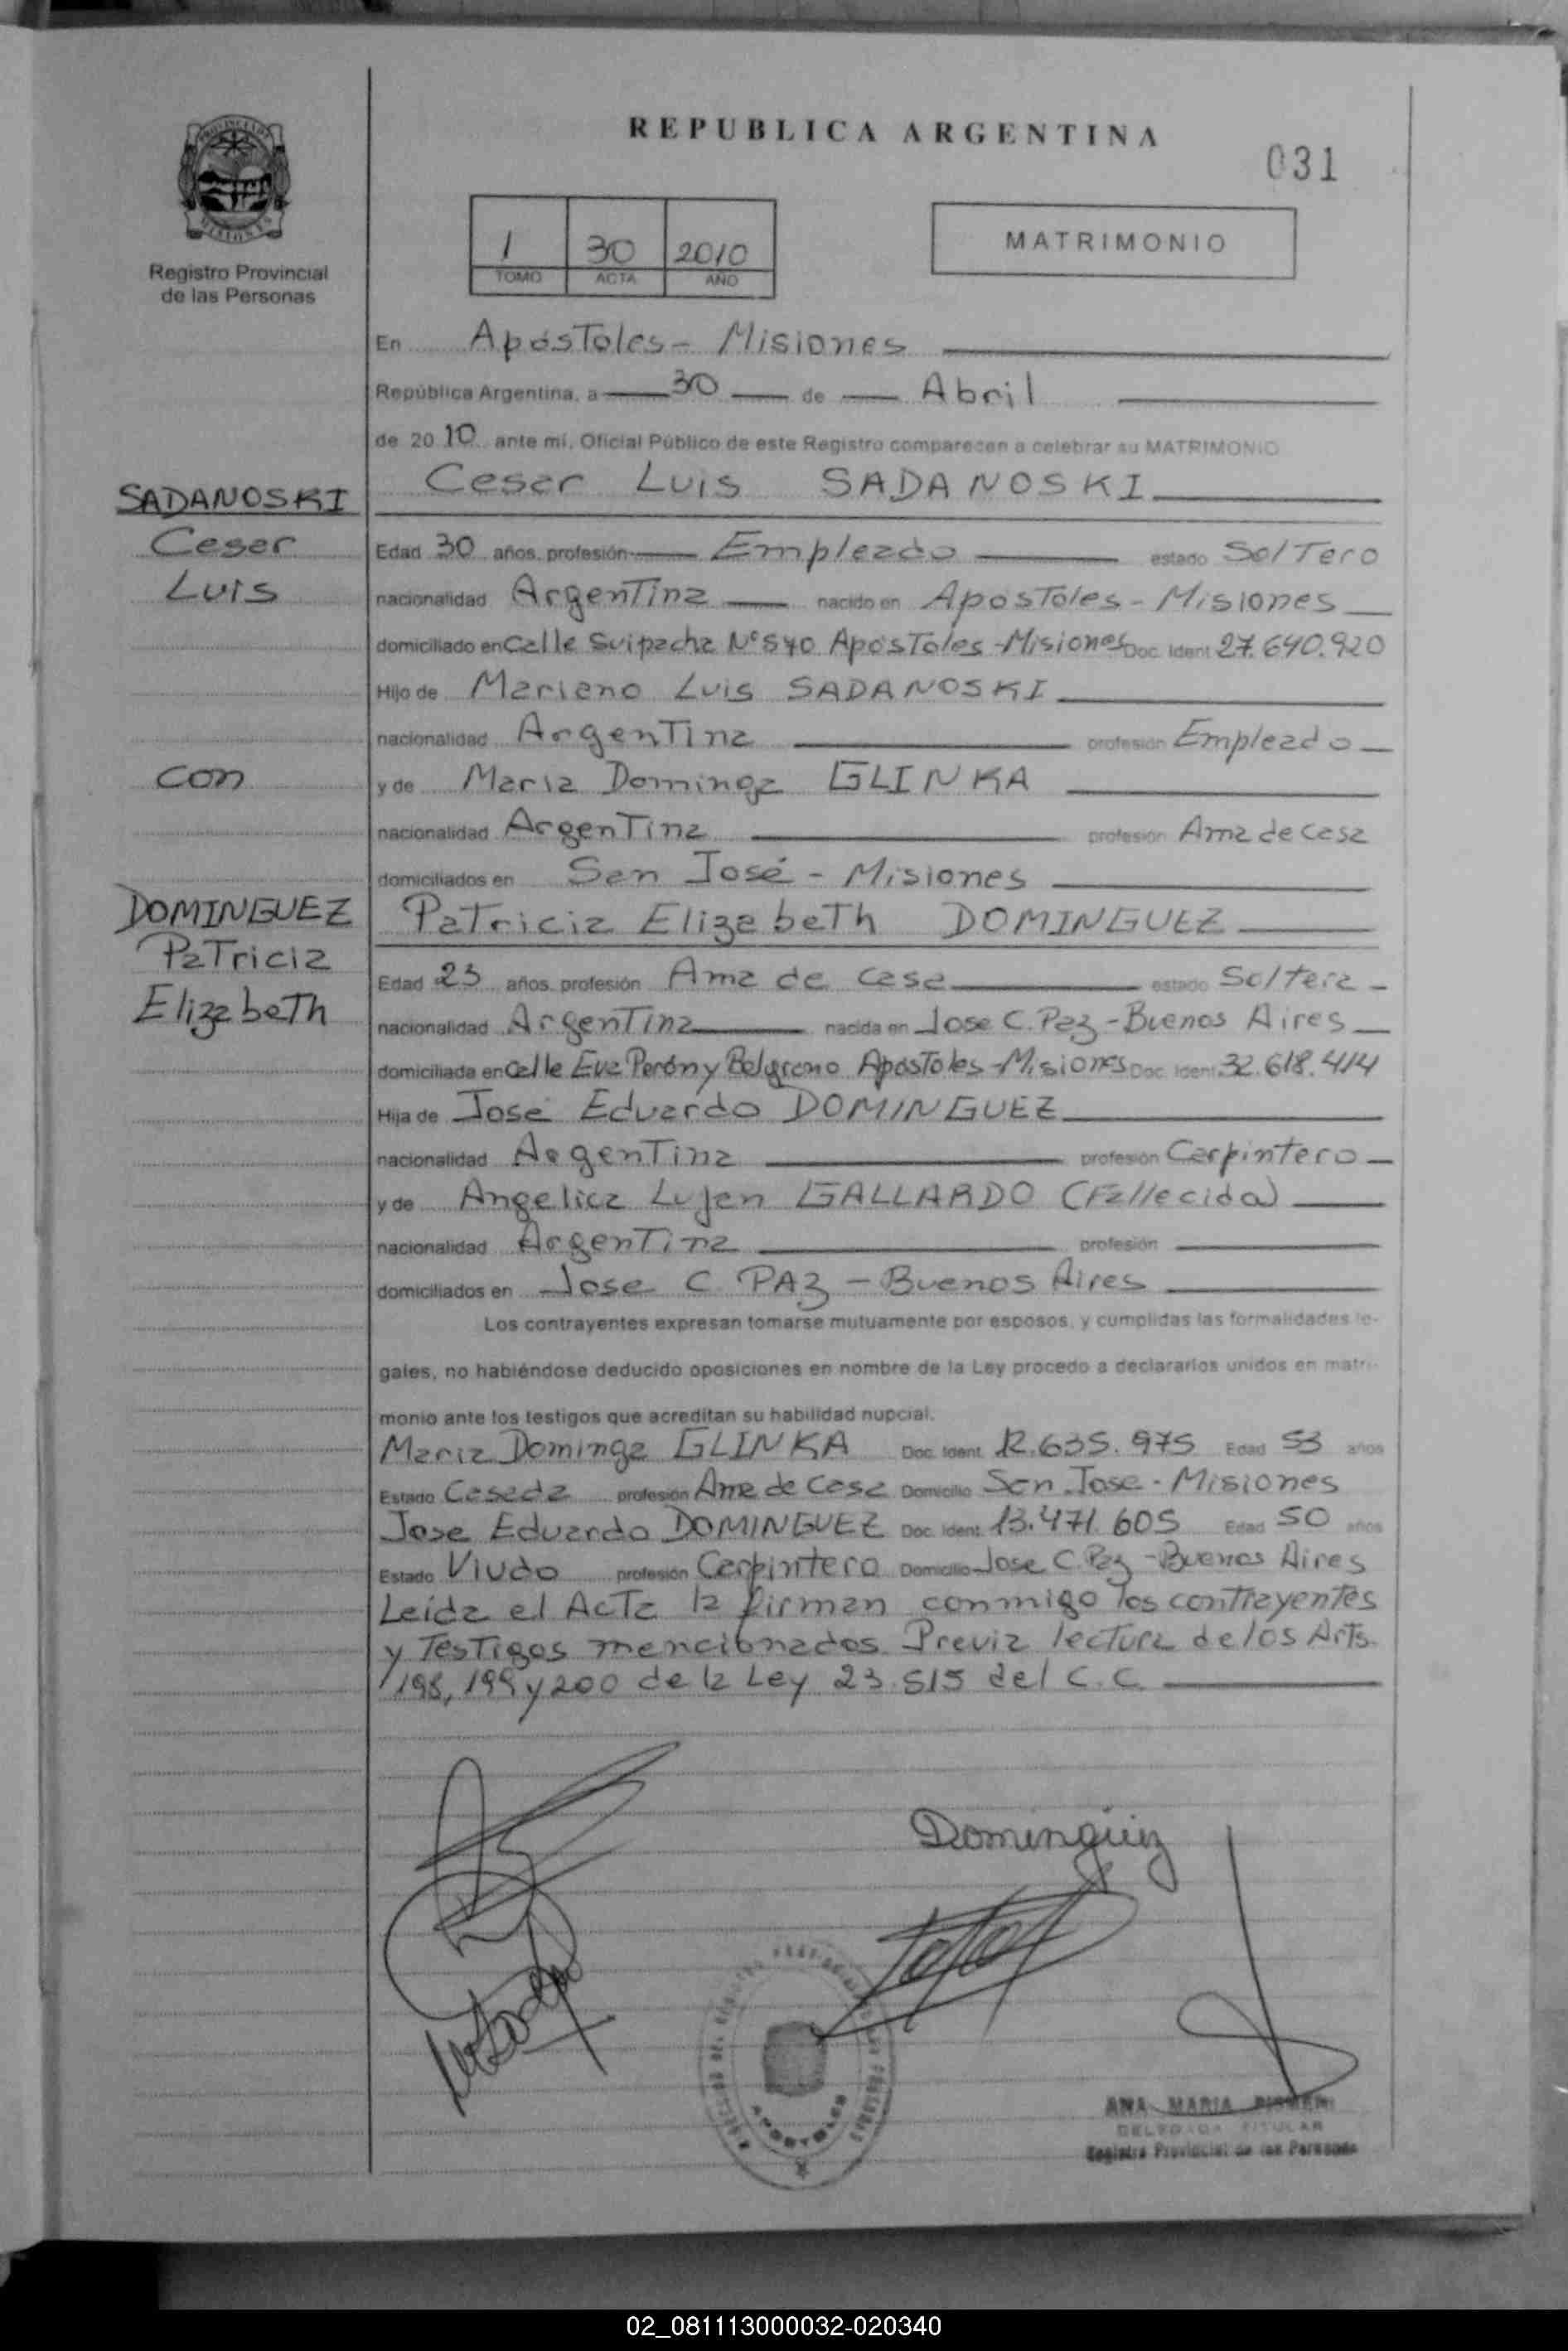 REPUBLICA ARGENTINA
031
Registro Provincial
de las Personas
1 30 2010
TOMO ACTA AÑO
MATRIMONIO
En Apóstoles - Misiones
República Argentina, a 30 de Abril
de 2010 ante mí, Oficial Público de este Registro comparecen a celebrar su MATRIMONIO
SADANOSKI
Cesar
Luis
con
DOMINGUEZ
Patricia
Elizabeth
Cesar Luis SADANOSKI
Edad 30 años profesión Empleado estado Soltero
nacionalidad Argentina nacido en Apóstoles - Misiones
domiciliado en Calle Suipacha Nº 540 Apóstoles - Misiones Doc. Ident. 27.640.920
Hijo de Mariano Luis SADANOSKI
nacionalidad Argentina profesión Empleado
y de Maria Dominga GLINKA
nacionalidad Argentina profesión Ama de casa
domiciliados en San José - Misiones
Patricia Elizabeth DOMINGUEZ
Edad 23 años profesión Ama de casa estado Soltera
nacionalidad Argentina nacida en Jose C. Paz - Buenos Aires
domiciliada en Calle Eva Perón y Belgrano Apóstoles - Misiones Doc. Ident. 32.618.414
Hija de José Eduardo DOMINGUEZ
nacionalidad Argentina profesión Carpintero
y de Angelica Lujan GALLARDO (Fallecida)
nacionalidad Argentina profesión
domiciliados en Jose C. PAZ - Buenos Aires
Los contrayentes expresan tomarse mutuamente por esposos, y cumplidas las formalidades le-
gales, no habiéndose deducido oposiciones en nombre de la Ley procedo a declararlos unidos en matri-
monio ante los testigos que acreditan su habilidad nupcial.
Maria Dominga GLINKA Doc. Ident. 12.635.975 Edad 53 años
Estado Casada profesión Ama de Casa Domicilio San Jose - Misiones
Jose Eduardo DOMINGUEZ Doc. Ident. 13.471.605 Edad 50 años
Estado Viudo profesión Carpintero Domicilio Jose C. Paz - Buenos Aires
Leída el Acta la firman conmigo los contrayentes
y Testigos mencionados. Previa lectura de los Arts.
198, 199 y 200 de la Ley 23.515 del C.C.
Dominguez
APOSTOLES
ANA MARIA
DELEGADA TITULAR
Registro Provincial de las Personas
02_081113000032-020340